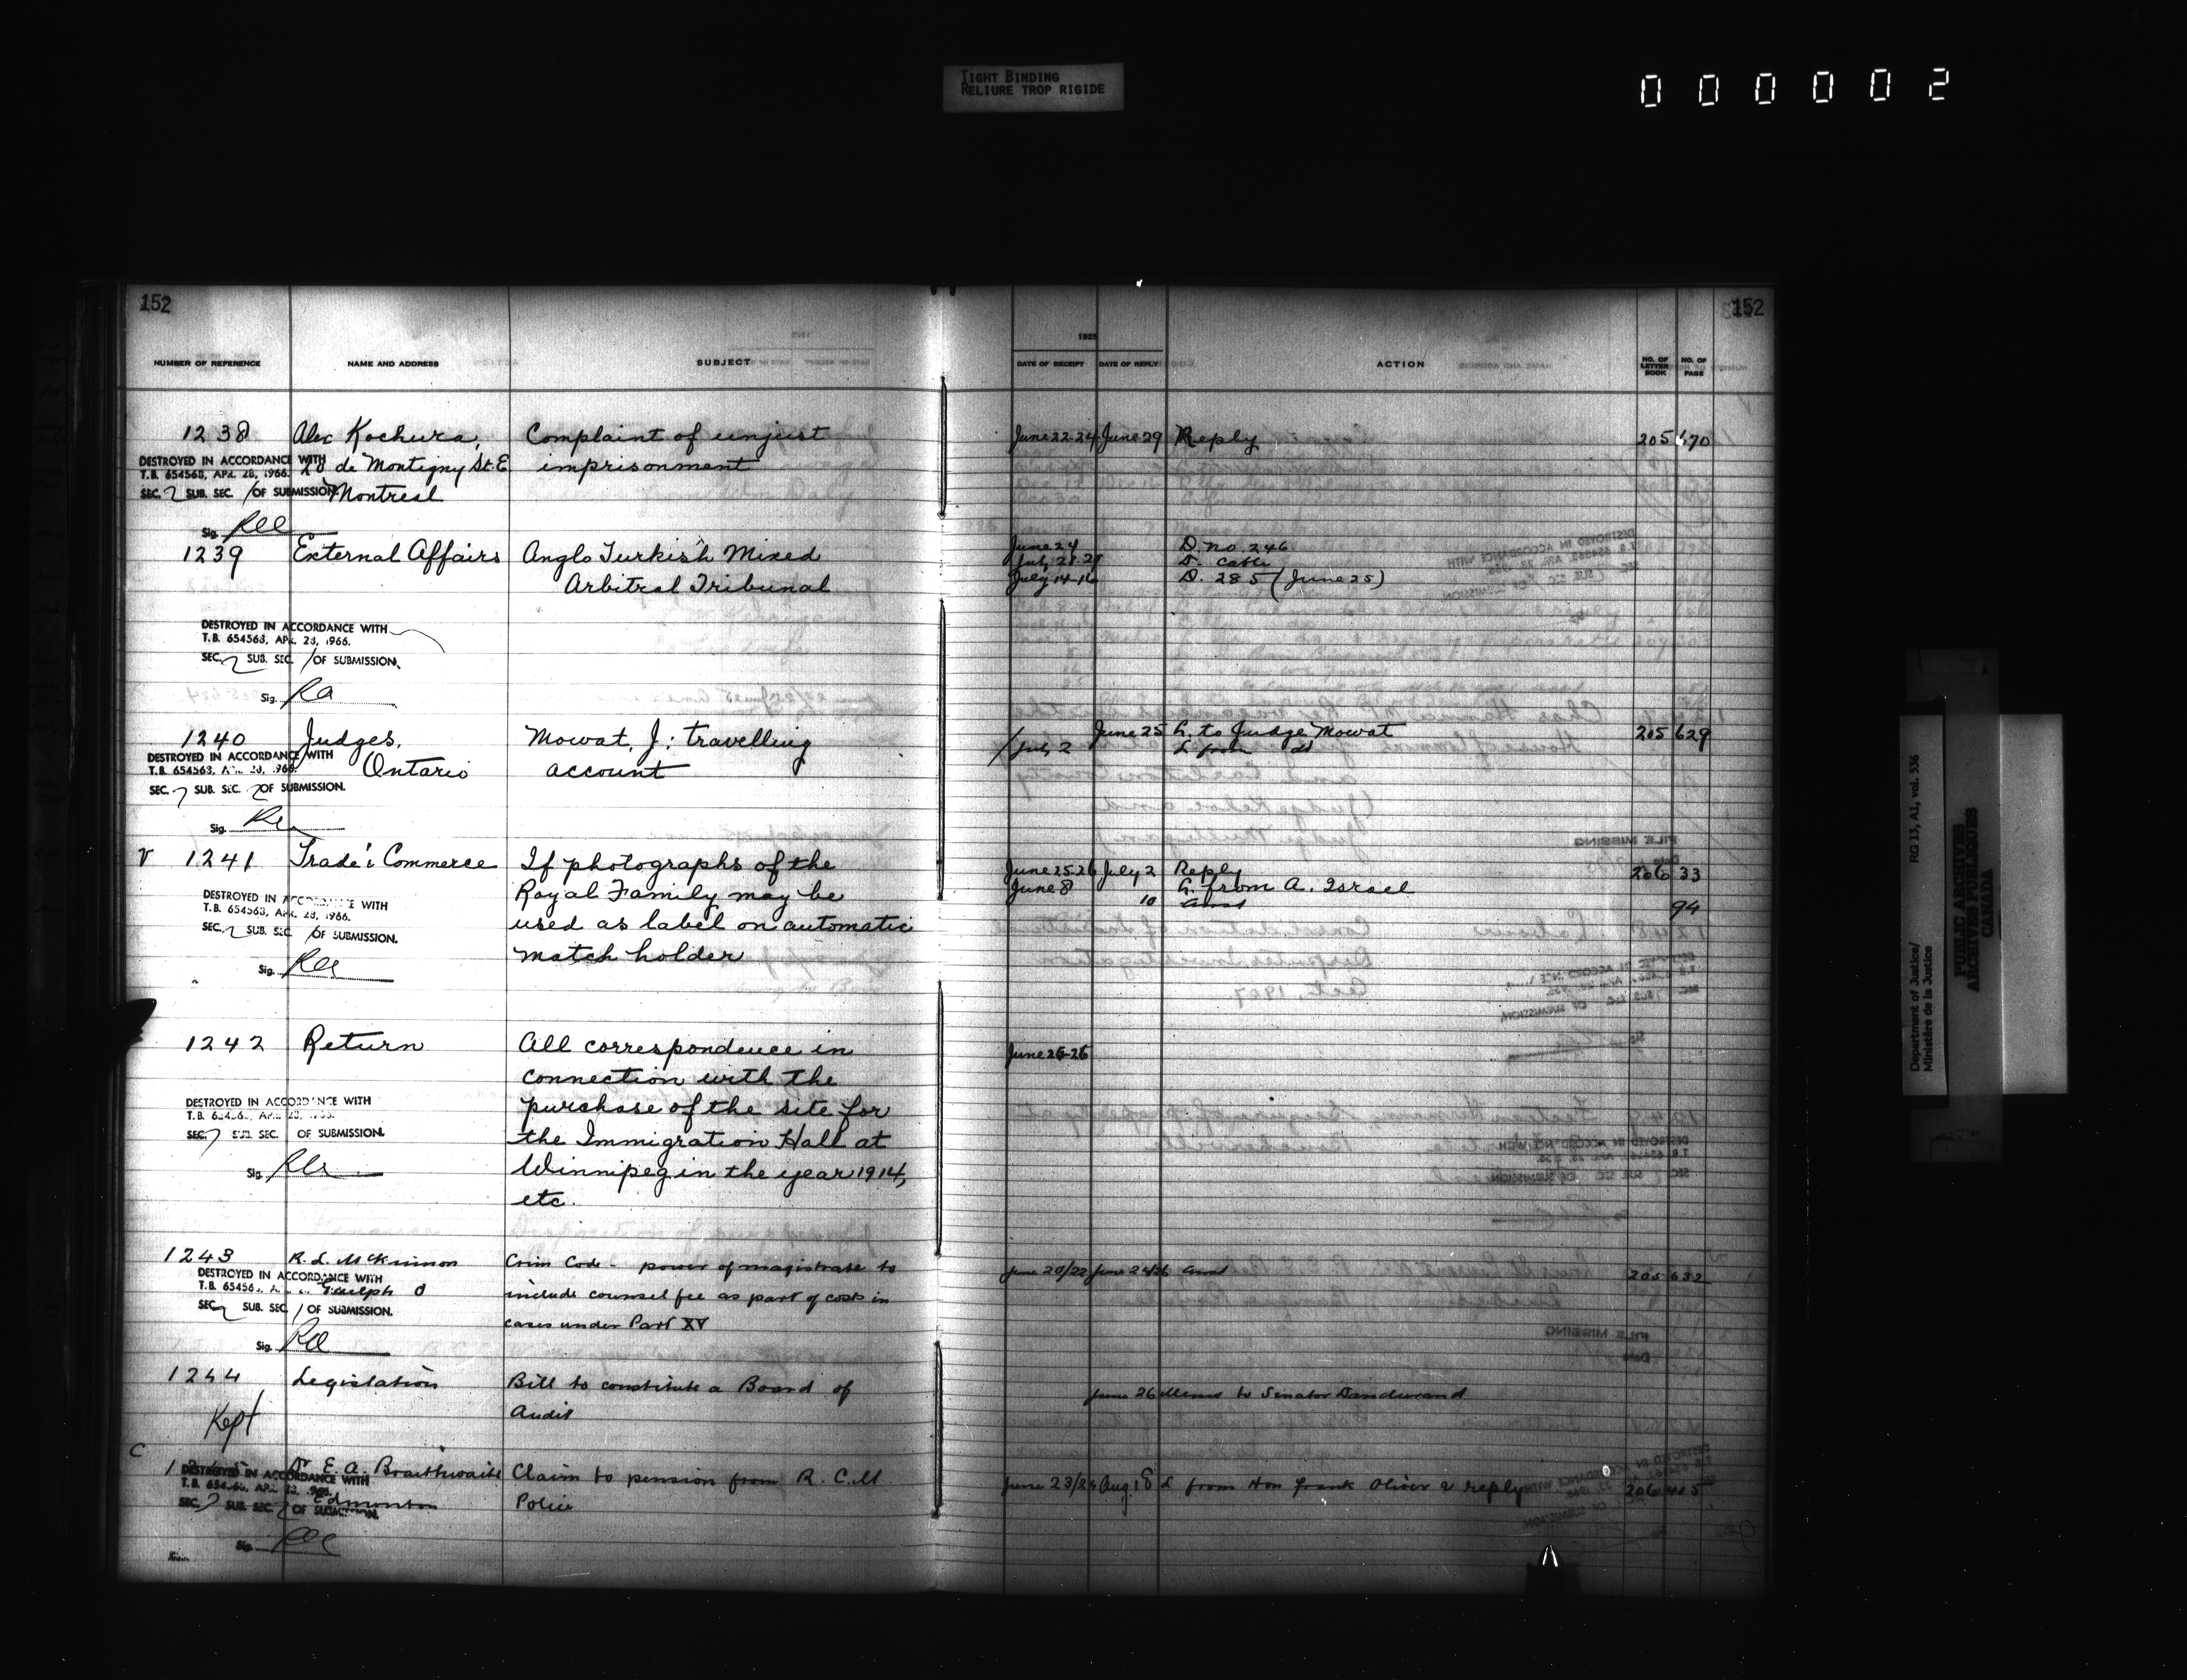 TIGHT BINDING
RELIURE TROP RIGIDE
000002
152
152
1925
NUMBER OF REFERENCE NAME AND ADDRESS SUBJECT DATE OF RECEIPT DATE OF REPLY ACTION NO. OF LETTER BOOK NO. OF PAGE
1238 Alex Kochura, Complaint of unjust June 22-24 June 29 Reply 205 670
DESTROYED IN ACCORDANCE WITH
20 de Montigny St. E imprisonment
T.B. 654563, APR. 28, 1966.
SEC. 2 SUB. SEC. 1 OF SUBMISSION
Montreal
Sig.
1239 External Affairs Anglo Turkish Mixed June 24 D. no. 246
Arbitral Tribunal D. Cable
July 14-16 D. 285 (June 25)
DESTROYED IN ACCORDANCE WITH
T.B. 654563, APR. 28, 1966.
SEC. 2 SUB. SEC. 1 OF SUBMISSION.
Sig.
1240 Judges, Mowat, J: travelling June 25 L. to Judge Mowat 205 629
Ontario account July 2 L from do
DESTROYED IN ACCORDANCE WITH
T.B. 654563, 1966.
SEC. 7 SUB. SEC. 2 OF SUBMISSION.
Sig.
1241 Trade & Commerce If photographs of the June 25-26 July 2 Reply 206 33
Royal Family may be June 8 L. from A. Israel
10 94
used as label on automatic
match holder
DESTROYED IN ACCORDANCE WITH
T.B. 654563, APR. 28, 1966.
SEC. 2 SUB. SEC. 1 OF SUBMISSION.
Sig.
1242 Return All correspondence in June 26-26
connection with the
purchase of the site for
the Immigration Hall at
Winnipeg in the year 1914,
etc.
DESTROYED IN ACCORDANCE WITH
SEC. 7 SUB. SEC. OF SUBMISSION.
Sig.
1243 R. L. McKinnon Crim Code - power of magistrate to June 20/22 June 24/26 205 632
Guelph O include counsel fee as part of costs in
cases under Part XV
DESTROYED IN ACCORDANCE WITH
SEC. 2 SUB. SEC. 1 OF SUBMISSION.
Sig.
1244 Legislation Bill to constitute a Board of June 26 Memo to Senator Dandurand
Audit
Kept
C
Dr E. A. Braithwaite Claim to pension from R. C. M June 23/24 Aug. 18 L from Hon Frank Oliver & reply 206
Edmonton Police
DESTROYED IN ACCORDANCE WITH
SEC. 2 SUB. SEC. 2 OF SUBMISSION.
Sig.
Department of Justice/ RG 13, A1, vol. 536
Ministère de la Justice
PUBLIC ARCHIVES
ARCHIVES PUBLIQUES
CANADA